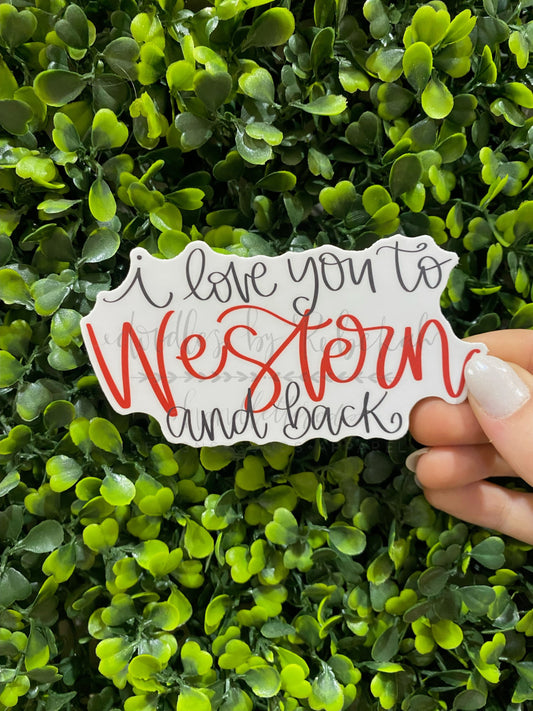 i love you to
Western
and back
doodles by Rebekah